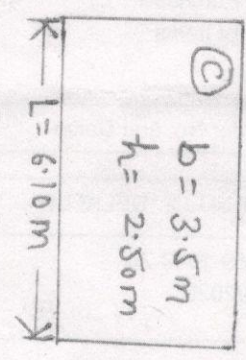 C
b = 3.5m
h = 2.50m
L = 6.10m